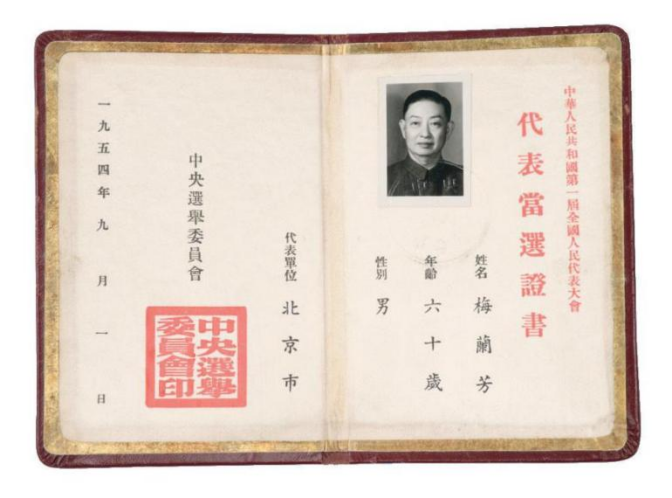 中華人民共和國第一屆全國人民代表大會
代表當選證書
姓名 梅蘭芳
年齡 六十歲
性別 男
代表單位 北京市
中央選舉委員會
一九五四年九月一日
中央選舉
委員會印